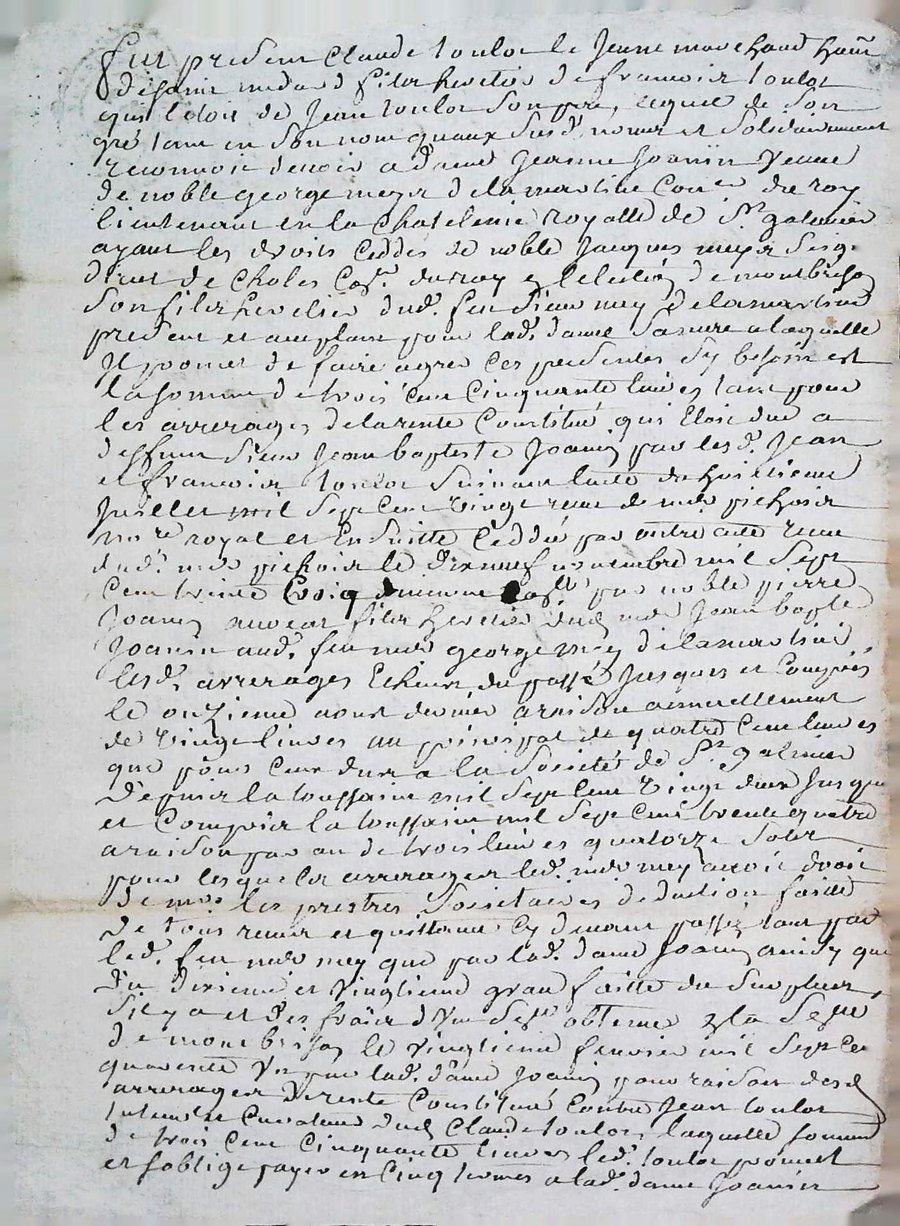 Fut present Claude toulot le Jeune marchand
fils heretier de francois toulot
qui letoit de Jean toulot son pere, lequel de son
gré tant en son nom quaux susd. noms et solidairement
reconnoit devoir a dame Jeanne Joanin veuve
de noble george meya delamartine Coner du roy
lieutenant en la Chatelenie royalle de St galmier
ayant les droits ceddes de noble Jacques meya seig.
direct de Choles Coner du roy en lelection de montbrison
son fils heretier dud. feu sieur mey delamartine
present et acceptant pour lad. dame sa mere a laquelle
Il promet de faire agreer ces presentes sy besoin est
la somme de trois cent cinquante livres tant pour
les arrerages de la rente Constitué qui Etoit due a
deffunt sieur Jean baptiste Joanin par lesd. Jean
et francois toulot suivant lacte du huitieme
Juillet mil sept cent vingt receu de me pichoir
nore royal et Ensuitte Ceddée par autre acte receu
dud. me pichoir le dixneuf novembre mil sept
cent trente trois par noble pierre
Joanin avocat fils heretier dud. me Jean bapte
Joanin aud. feu me george mey delamartine
lesd. arrerages Echeus du passé Jusques et Compris
le onzieme aout dernier a raison annuellement
de vingt livres au principal de quatre cent livres
que pour ceux dus a la Societé de St galmier
depuis la toussaint mil sept cent vingt deux Jusque
et Compris la toussaint mil sept cent trente quatre
a raison par an de trois livres quatorze sols
pour lesquels arrerages led. me mey avoit droit
de mrs les prestres Societaires deduction faitte
de tous receus et quittances cy devant passés tant par
led. feu me mey que par lad. dame Joanin ainsy que
du dixieme et vingtieme grace faitte du surplus,
sil y a et des frais dune sentce obtenue en la Senee
de montbrison le vingtieme fevrier mil sept ce
quarente par lad. dame Joanin pour raison desd.
arrerages de rente Constitué contre Jean toulot
Curateur dud. Claude toulot laquelle somme
de trois cent cinquante livres led. toulot promet
et soblige payer en cinq termes a lad. dame Joanin